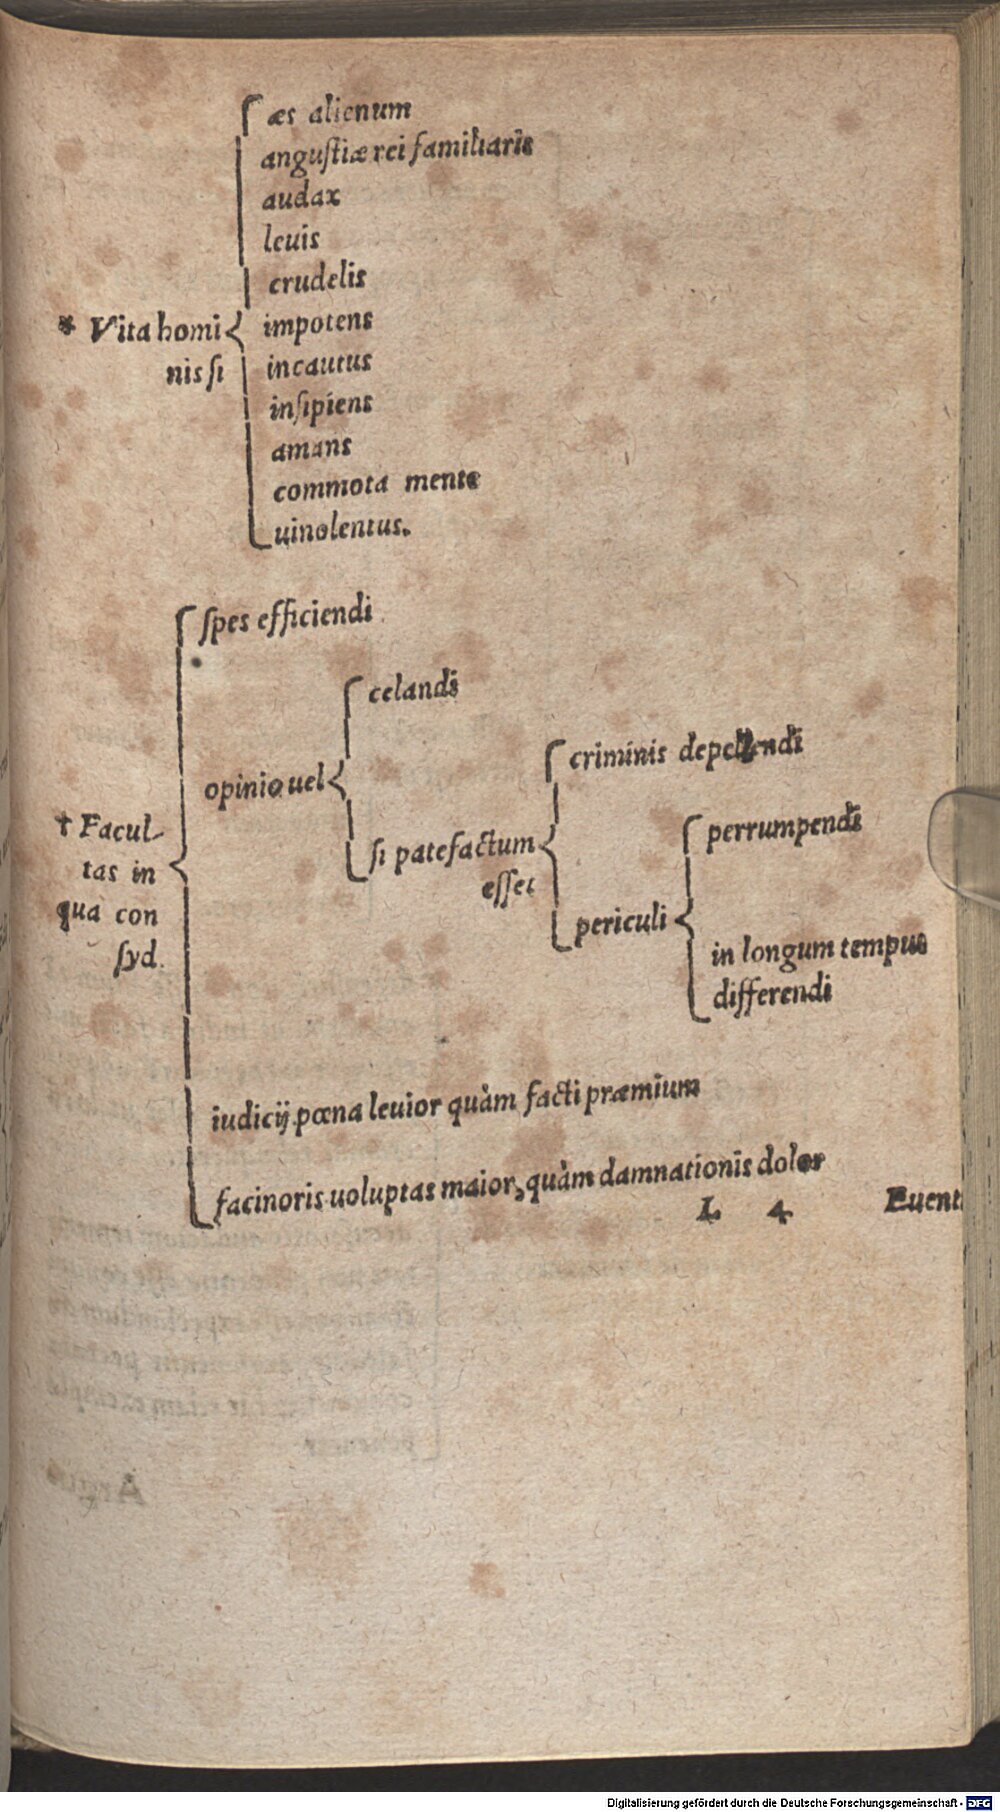 æs alienum
angustiæ rei familiaris
audax
leuis
crudelis
* Vita homi
nis si
impotens
incautus
insipiens
amans
commota mente
uinolentus.
spes efficiendi
celandi
opinio uel
criminis depellendi
si patefactum
esset
perrumpendi
periculi
in longum tempus
differendi
† Facul-
tas in
qua con
syd.
iudicij pœna leuior quàm facti præmium
facinoris uoluptas maior, quàm damnationis dolor
L 4 Euent
Digitalisierung gefördert durch die Deutsche Forschungsgemeinschaft - DFG